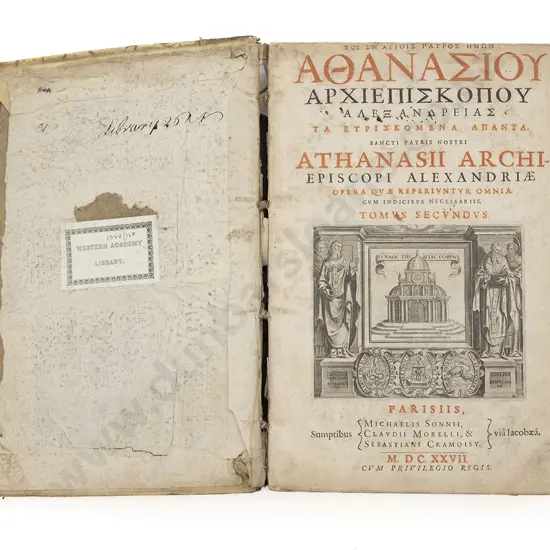 Library
1244/168
WESTERN ACADEMY
LIBRARY.
ΤΟΥ ΕΝ ΑΓΙΟΙΣ ΠΑΤΡΟΣ ΗΜΩΝ
ΑΘΑΝΑΣΙΟΥ
ΑΡΧΙΕΠΙΣΚΟΠΟΥ
ΑΛΕΞΑΝΔΡΕΙΑΣ
ΤΑ ΕΥΡΙΣΚΟΜΕΝΑ ΑΠΑΝΤΑ.
SANCTI PATRIS NOSTRI
ATHANASII ARCHI-
EPISCOPI ALEXANDRIÆ
OPERA QVÆ REPERIVNTVR OMNIA
CVM INDICIBVS NECESSARIIS.
TOMVS SECVNDVS
PARISIIS,
Sumptibus { MICHAELIS SONNII,
CLAVDII MORELLI, &
SEBASTIANI CRAMOISY, } viâ Iacobæâ.
M. DC. XXVII
CVM PRIVILEGIO REGIS.